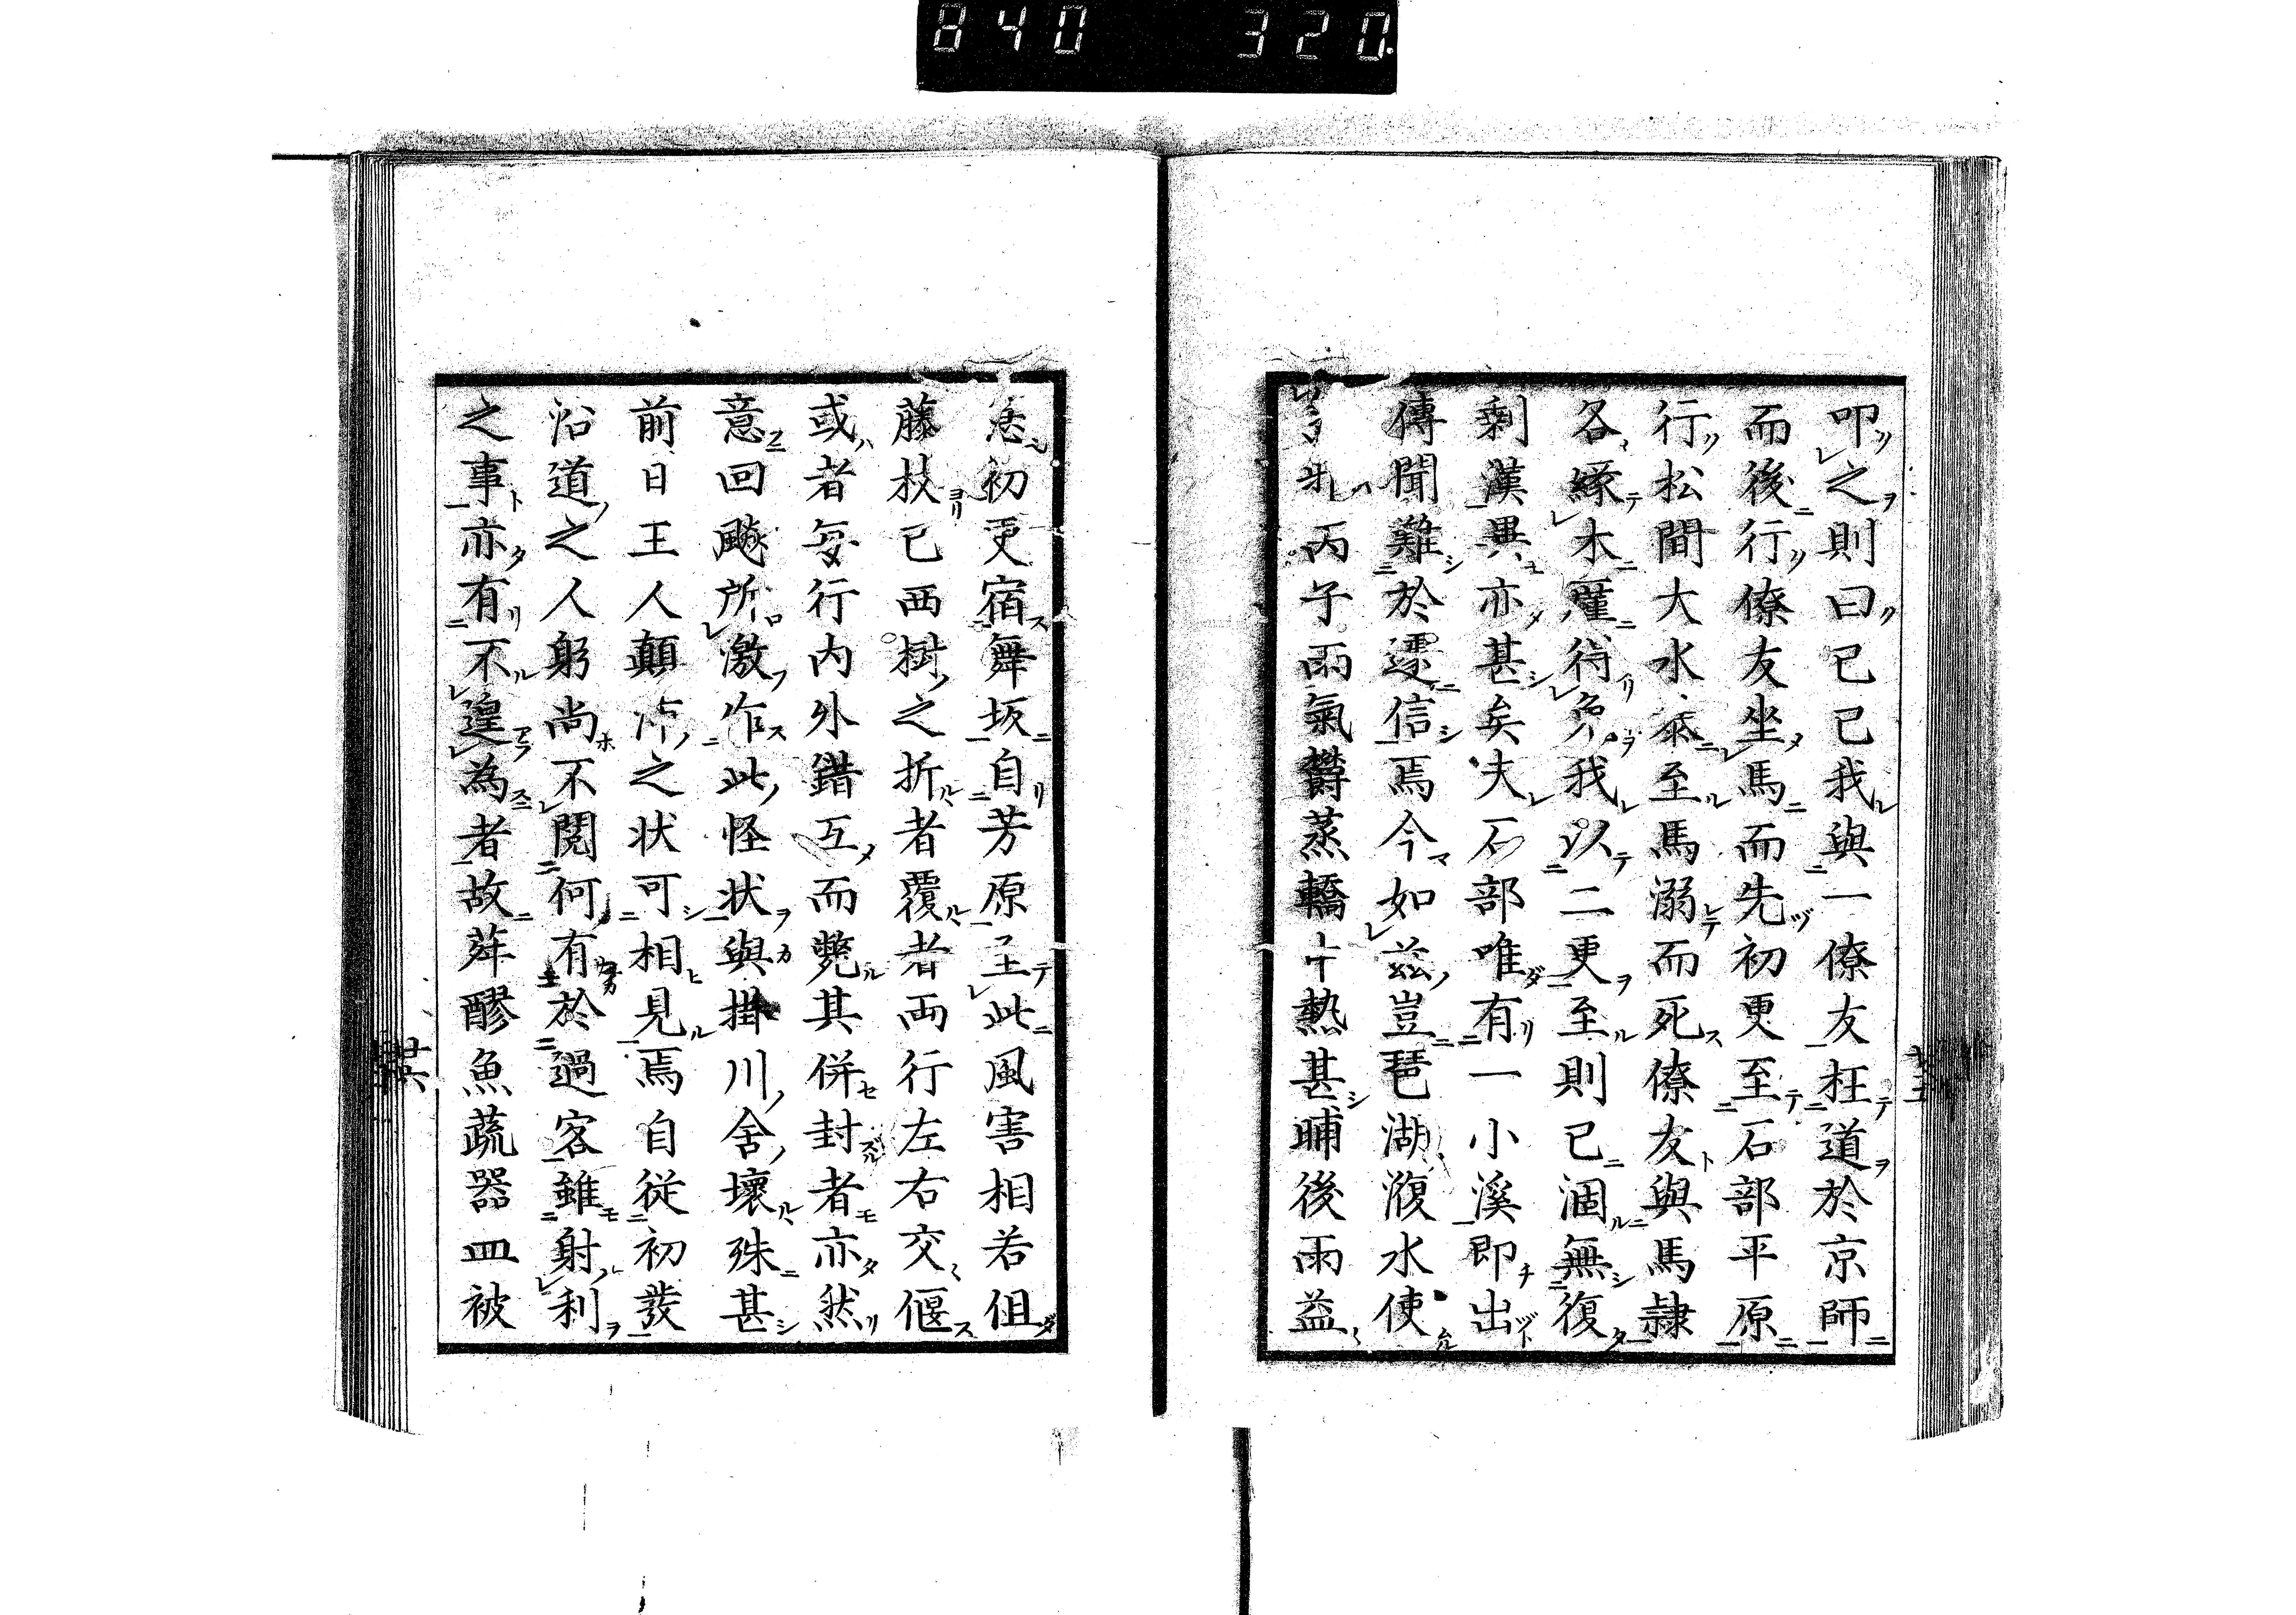 840 320
叩之則曰已已我與一僚友枉道於京師
而後行僚友坐馬而先初更至石部平原
行松間大水忝至馬溺而死僚友與馬隷
各縁木廑得免我以二更至則已涸無復
剰漢異亦甚矣夫石部唯有一小溪即出
傳聞難於遽信焉今如茲豈琶湖澓水使
丙子雨氣欝蒸轎中熱甚晡後雨益
初更宿舞坂自芳原至此風害相若但
藤枝已西樹之折者覆者両行左右交偃
或者毎行内外錯互而斃其併封者亦然
意回飈所激作此怪状與掛川舎壊殊甚
前日王人顛沛之状可相見焉自從初發
沿道之人躬尚不閲何有於過客雖射利
之事亦有不遑為者故茾醪魚蔬器皿被